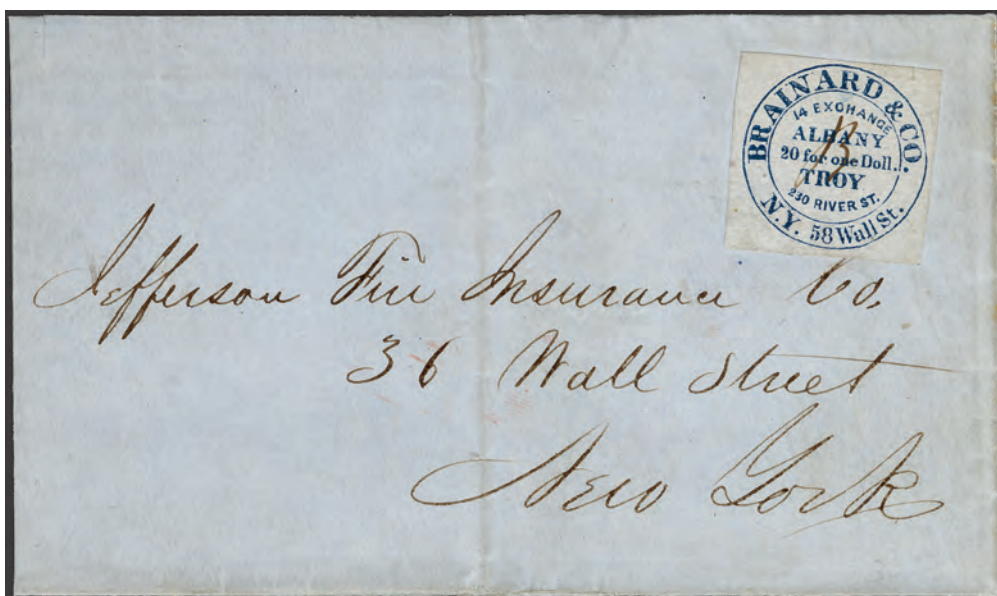 BRAINARD & CO.
14 EXCHANGE
ALBANY
20 for one Doll..
TROY
230 RIVER ST.
N.Y. 58 Wall St.
B
Jefferson Fire Insurance Co.
36 Wall Street
New York